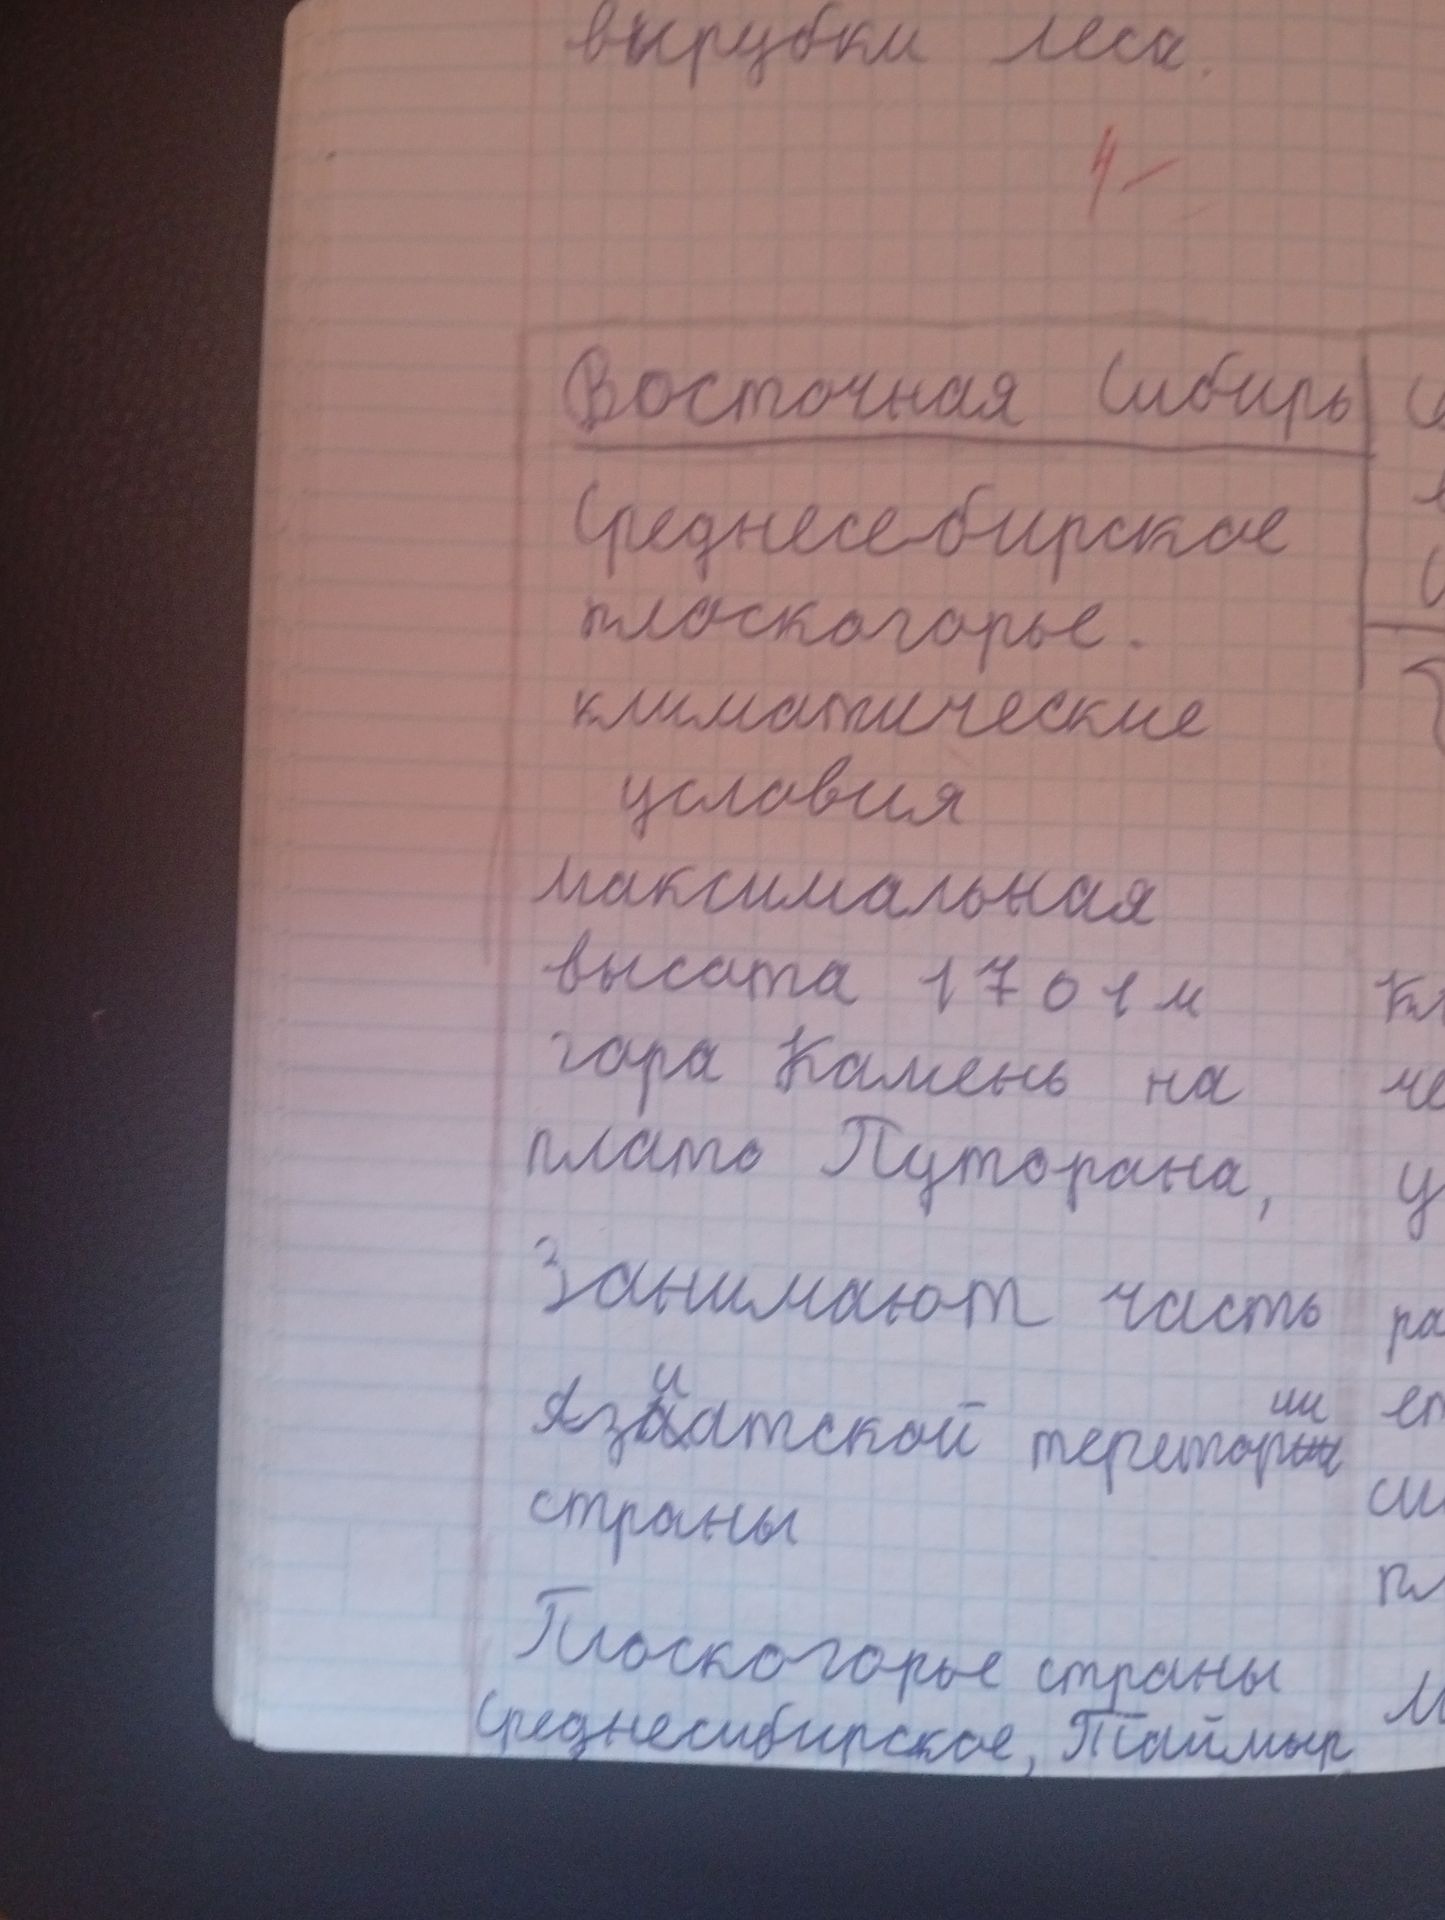 вырубки леса.
4-
Восточная Сибирь
Среднесебирское
плоскогорье.
климатические
условия
максимальная
высота 1701м
гора Камень на
плато Путорана,
Занимают часть
Язиатской територии
страны
Плоскогорье страны
Среднесибирское, Таймыр